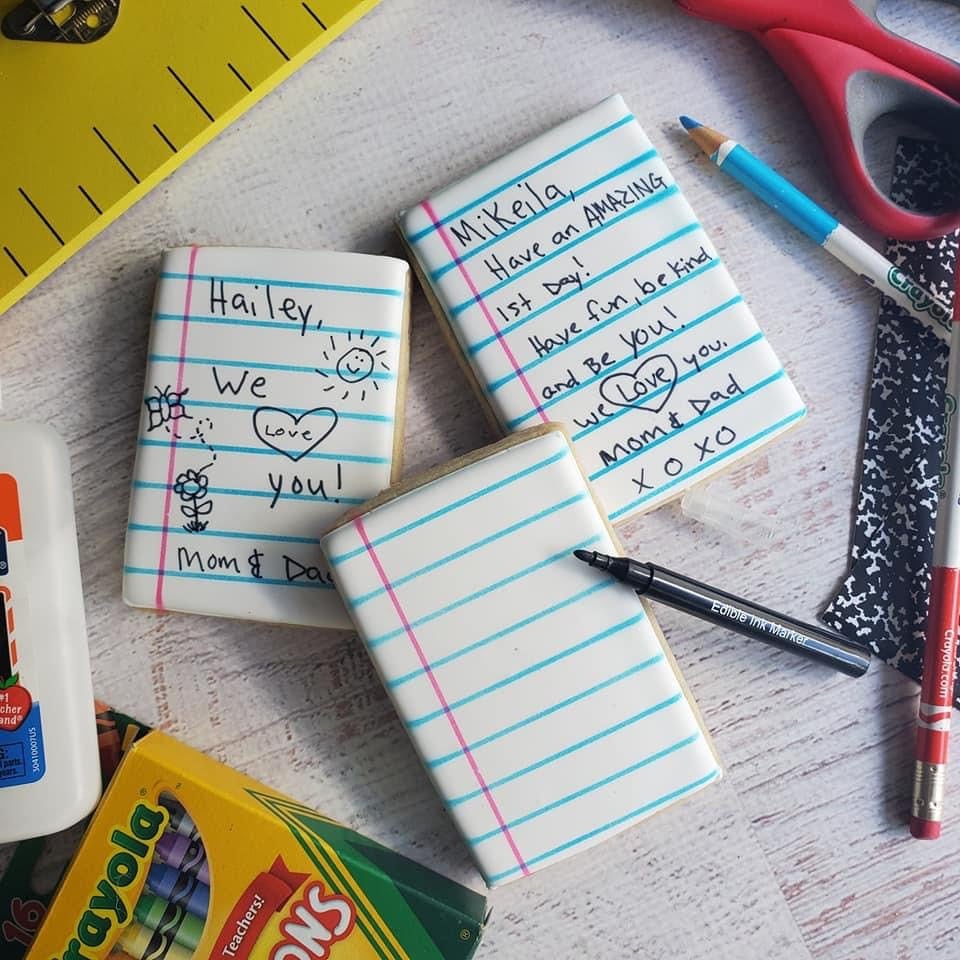 Hailey,
We
Love
you!
Mom & Da
MiKeila,
Have an AMAZING
1st Day!
Have fun, be kind
and Be you!
we Love you.
Mom & Dad
X O X O
Edible Ink Marker
Crayola
Crayola.com
#1
cher
and®
parts.
years.
30410007US
Crayola
Teachers!
ONS
16